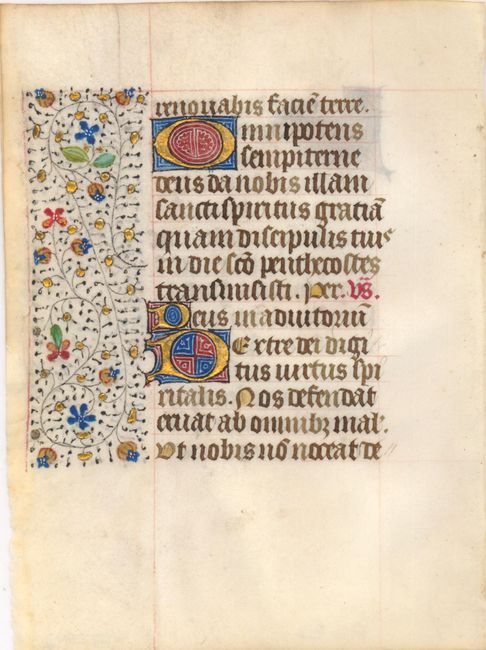 renovabis faciē terre.
Omnipotens
sempiterne
deus da nobis illam
sancti spiritus gratiā
quam discipulis tuis
in die scō penthecostes
transmisisti. Per. vs̄.
Deus in adiutoriū
Dextre dei digi
tus virtus spi
ritalis. Nos defendat
eruat ab omnibz mal'.
Ut nobis nō noceat de